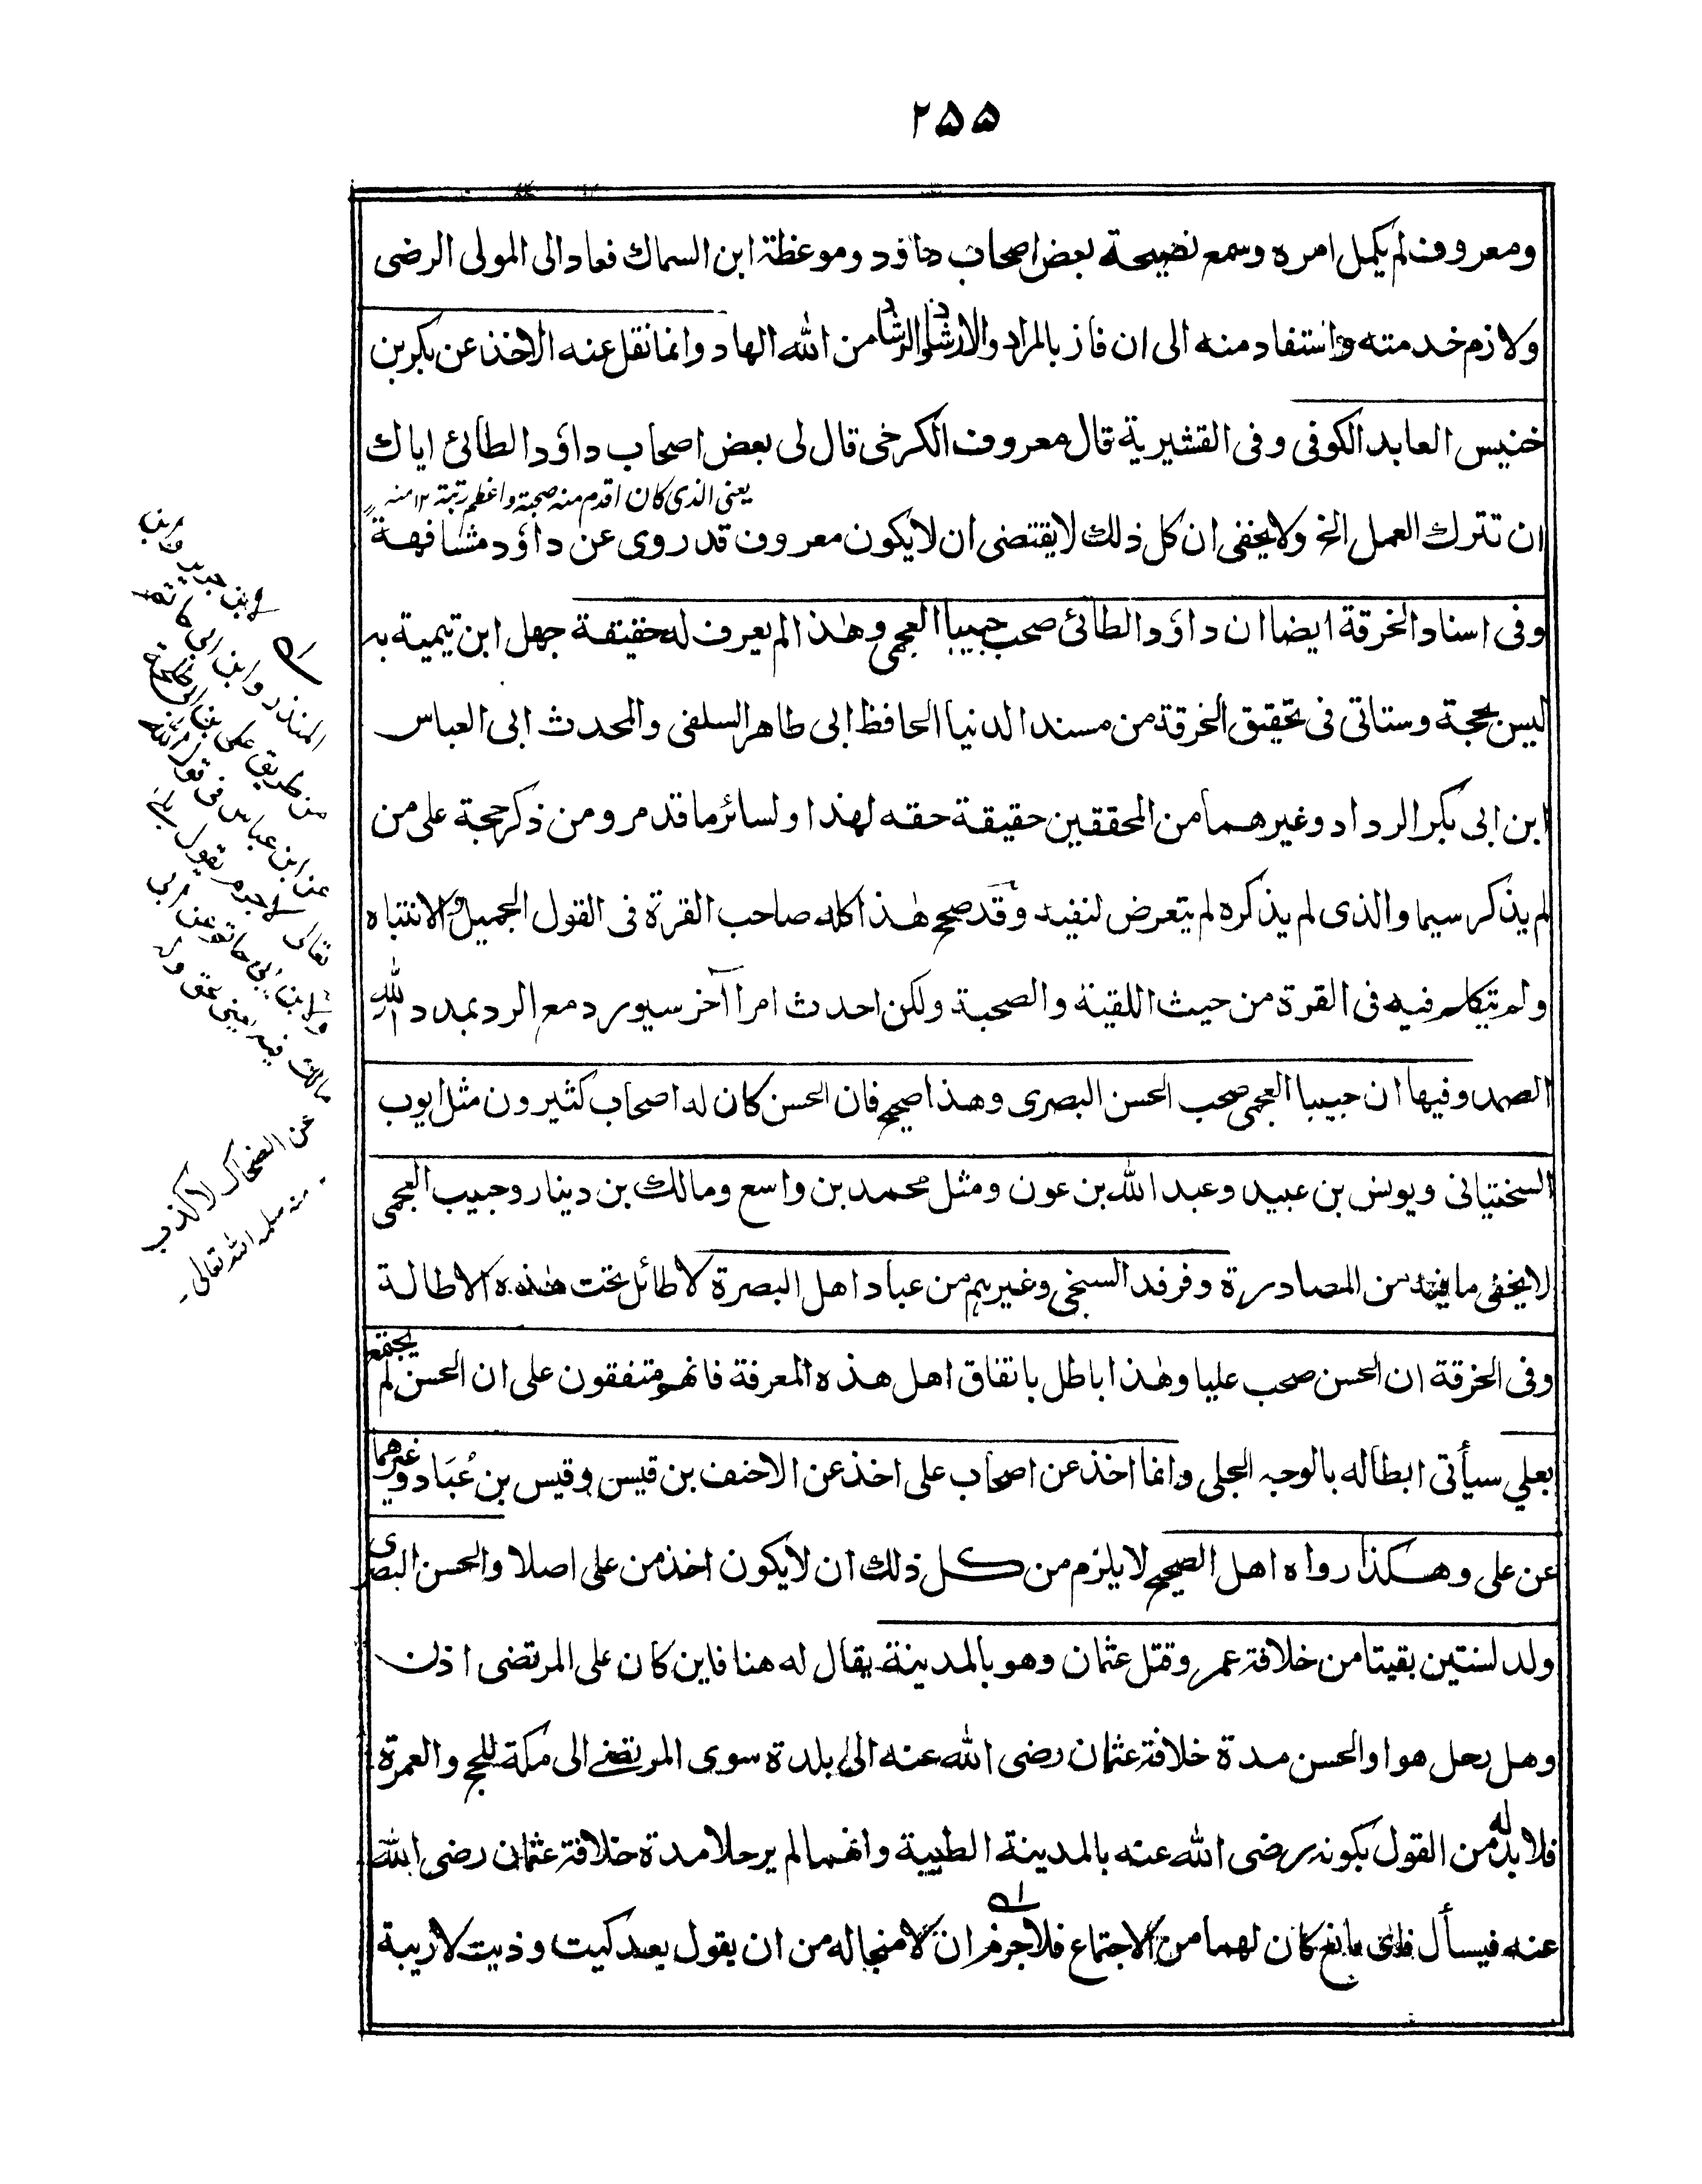 ۲۵۵
ومعروف لم يكمل امره وسمع نصيحة بعض اصحاب داؤد وموعظة ابن السماك فعاد الى المولى الرضى
ولازم خدمته واستفاد منه الى ان فاز بالمراد والارشاد والرشاد من الله الهاد وانما نقل عنه الاخذ عن بكر بن
خنيس العابد الكوفى وفى القشيرية قال معروف الكرخى قال لى بعض اصحاب داؤد الطائئ اياك
يعنى الذى كان اقدم منه صحبة واعظم رتبة ١٢ منه
ان تترك العمل الخ ولا يخفى ان كل ذلك لا يقتضى ان لا يكون معروف قد روى عن داؤد مشافهة
وفى اسناد الخرقة ايضا ان داؤد الطائئ صحب حبيبا العجمى وهذا لم يعرف له حقيقة جهل ابن تيمية به
ليس بحجة وستاتى فى تحقيق الخرقة من مسند الدنيا الحافظ ابى طاهر السلفى والمحدث ابى العباس
ابن ابى بكر الرداد وغيرهما من المحققين حقيقة حقه لهذا ولسائر ما قد مر ومن ذكر حجة على من
لم يذكر سيما والذى لم يذكره لم يتعرض لنفيه وقد صحح هذا كله صاحب القرة فى القول الجميل والانتباه
ولم يتكلم فيه فى القرة من حيث اللقية والصحبة ولكن احدث امرا آخر سيورد مع الرد بمدد الله
الصمد وفيها ان حبيبا العجمى صحب الحسن البصرى وهذا صحيح فان الحسن كان له اصحاب كثيرون مثل ايوب
السختيانى ويونس بن عبيد وعبد الله بن عون ومثل محمد بن واسع ومالك بن دينار وحبيب العجمى
لا يخفى ما فيه من المصادرة وفرقد السبخى وغيرهم من عباد اهل البصرة لا طائل تحت هذه الاطالة
وفى الخرقة ان الحسن صحب عليا وهذا باطل باتفاق اهل هذه المعرفة فانهم متفقون على ان الحسن لم يجتمع
بعلي سيأتى ابطاله بالوجه الجلى وانما اخذ عن اصحاب على اخذ عن الاحنف بن قيس وقيس بن عُبَاد وغيرهما
عن على وهكذا رواه اهل الصحيح لا يلزم من كل ذلك ان لا يكون اخذ من على اصلا والحسن البصرى
ولد لسنتين بقيتا من خلافة عمر وقتل عثمان وهو بالمدينة يقال له هنا فاين كان على المرتضى اذن
وهل رحل هو او الحسن مدة خلافة عثمان رضى الله عنه الى بلدة سوى المرتضى الى مكة للحج والعمرة
فلا بد له من القول بكونه رضى الله عنه بالمدينة الطيبة وانهما لم يرحلا مدة خلافة عثمان رضى الله
عنه فيسأل فاى مانع كان لهما من الاجتماع فلا جرم ان لا منجا له من ان يقول بعد كيت وذيت لا ريبة
لابن جرير وابن
المنذر وابن ابى حاتم
من طريق على بن ابى طلحة
عن ابن عباس فى قول الله
تعالى لا جرم يقول بلى
ولابن ابى حاتم عن ابى
مالك فيه يعنى بحق
عن الضحاك لا كذب
منه سلمه الله تعالى